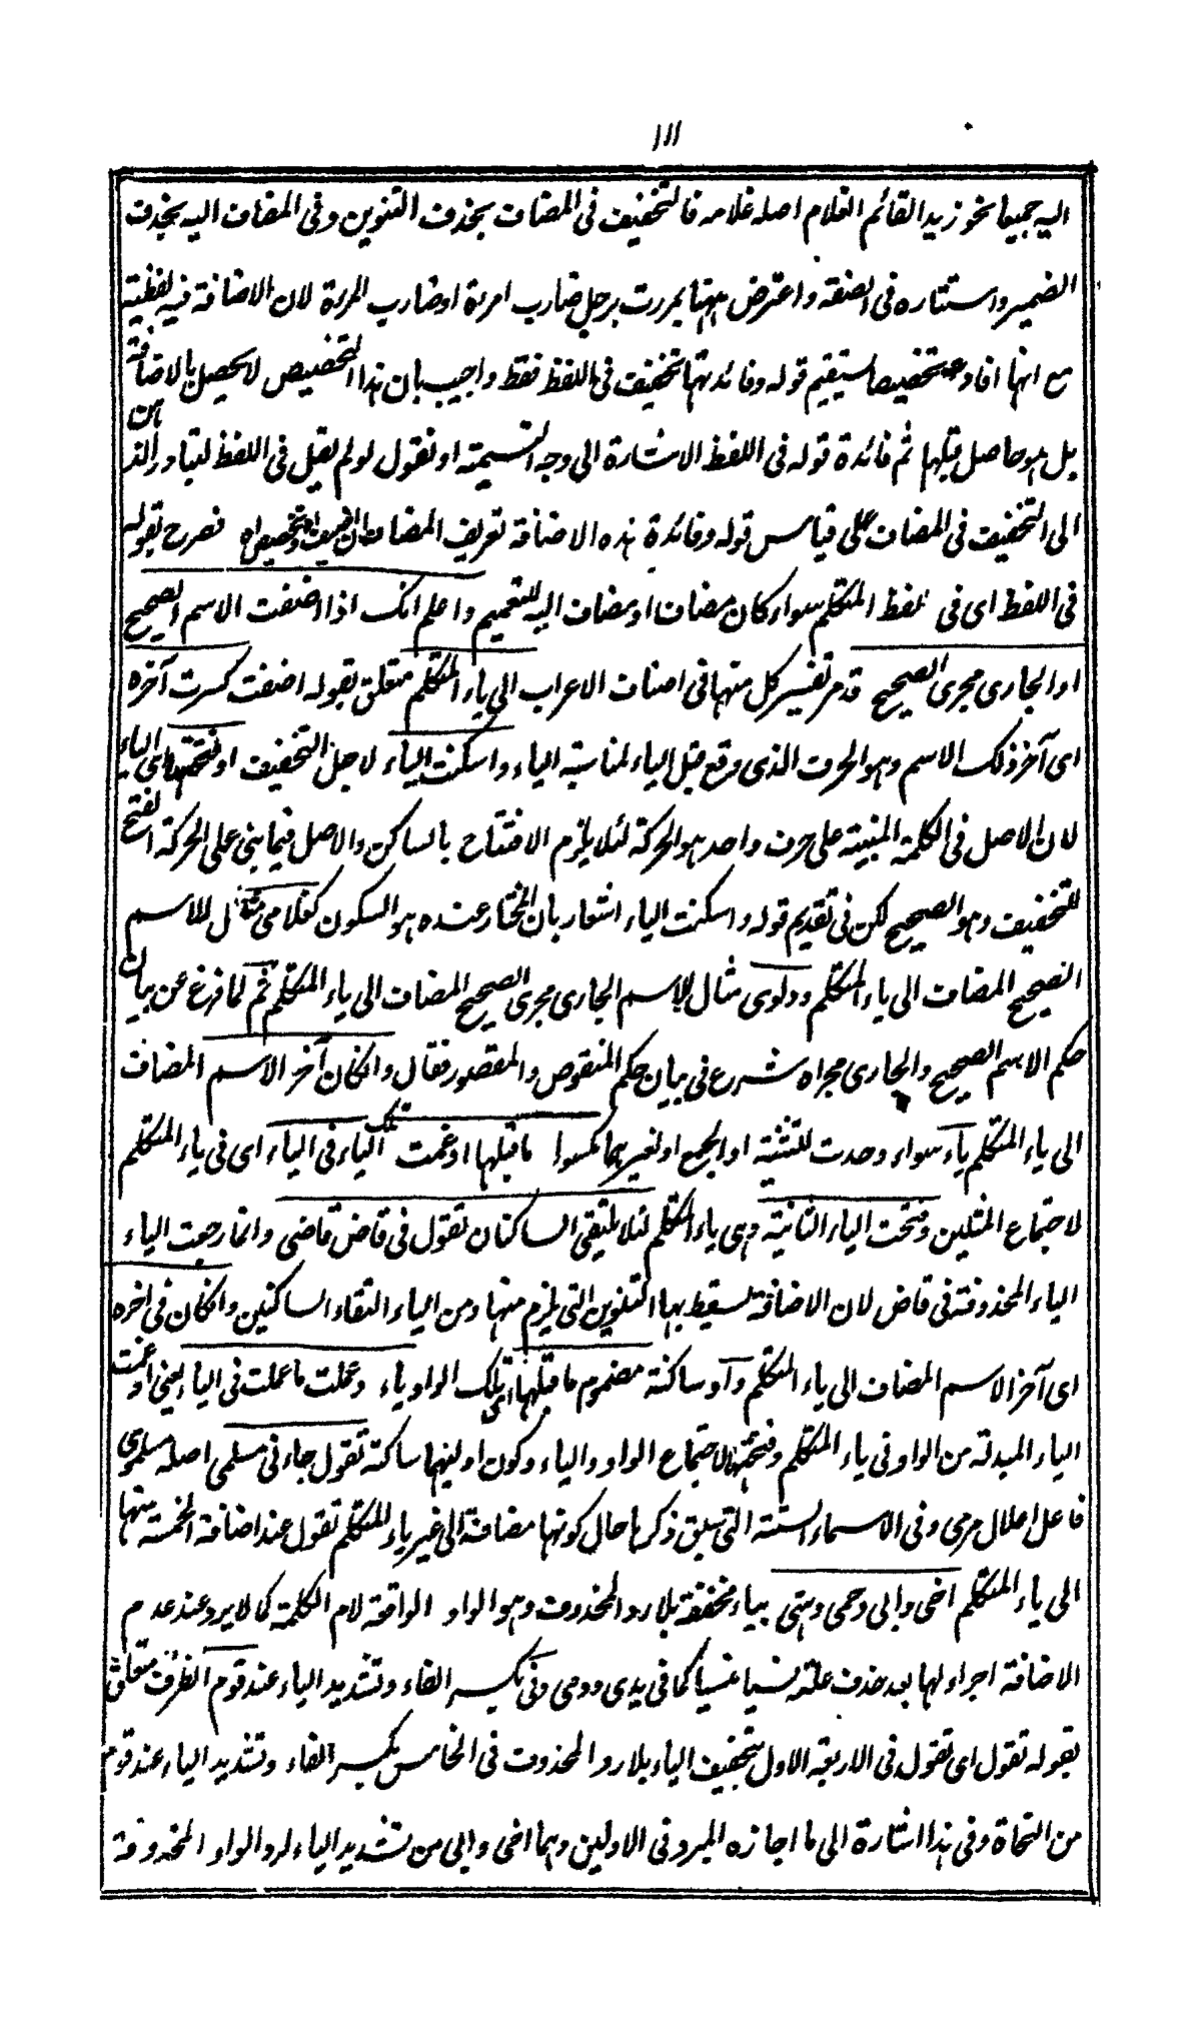 ١١١
اليه جميعا نحو زيد القائم الغلام اصله غلامه فالتخفيف فى المضاف بحذف التنوين وفى المضاف اليه بحذف
الضمير واستتاره فى الصفة واعترض ههنا بمررت برجل ضارب امرءة او ضارب المرءة لان الاضافة فيه لفظية
مع انها افادت تخصيصا فلا يستقيم قوله وفائدتها تخفيف فى اللفظ فقط واجيب بان هذا التخصيص لا يحصل بالاضافة
بل هو حاصل قبلها ثم فائدة قوله فى اللفظ الاشارة الى وجه التسمية او نقول لو لم يقل فى اللفظ لتبادر الذهن
الى التخفيف فى المضاف على قياس قوله وفائدة هذه الاضافة تعريف المضاف ان اضيف او تخصيصه فصرح بقوله
فى اللفظ اى فى لفظ المتكلم سواء كان مضافا او مضاف اليه للتعميم واعلم انك اذا اضفت الاسم الصحيح
او الجارى مجرى الصحيح قد مر تفسير كل منهما فى اصناف الاعراب الى ياء المتكلم متعلق بقوله اضفت كسرت آخره
اى آخر ذلك الاسم وهو الحرف الذى وقع قبل الياء لمناسبة الياء واسكنت الياء لاجل التخفيف او فتحتها اى الياء
لان الاصل فى الكلمة المبنية على حرف واحد هو الحركة لئلا يلزم الافتتاح بالساكن والاصل فيما بنى على الحركة الفتح
للتخفيف وهو الصحيح لكن فى تقديم قوله واسكنت الياء اشعار بان المختار عنده هو السكون كغلامى مثال للاسم
الصحيح المضاف الى ياء المتكلم ودلوى مثال للاسم الجارى مجرى الصحيح المضاف الى ياء المتكلم ثم لما فرغ عن بيان
حكم الاسم الصحيح والجارى مجراه شرع فى بيان حكم المنقوص والمقصور فقال وان كان آخر الاسم المضاف
الى ياء المتكلم ياء سواء وجدت للتثنية او الجمع او لغيرهما مكسورا ما قبلها ادغمت تلك الياء فى الياء اى فى ياء المتكلم
لاجتماع المثلين وفتحت الياء الثانية وهى ياء المتكلم لئلا يلتقى الساكنان تقول فى قاض قاضى وانما رجعت الياء
الياء المحذوفة فى قاض لان الاضافة تسقط بها التنوين التى يلزم منها ومن الياء التقاء الساكنين وان كان فى اخره
اى آخر الاسم المضاف الى ياء المتكلم واو ساكنة مضموم ما قبلها اى تلك الواو ياء وعملت ما عملت فى الياء يعنى ادغمت
الياء المبدلة من الواو فى ياء المتكلم وفتحتها لاجتماع الواو والياء وكون اوليهما ساكنة تقول جاءنى مسلمى اصله مسلموى
فاعل اعلال مرمى وفى الاسماء الستة التى سبق ذكرها حال كونها مضافة الى غير ياء المتكلم تقول عند اضافة الخمسة منها
الى ياء المتكلم اخى وابى وحمى وهنى بياء مخففة بلا رد المحذوف وهو الواو الواقعة لام الكلمة كما لا يرد عند عدم
الاضافة اجراء لها بعد حذف علته نسيا منسيا كما فى يدى ودمى وفى بكسر الفاء وتشديد الياء عند قوم الظرف متعلق
بقوله تقول اى تقول فى الاربعة الاول بتخفيف الياء بلا رد المحذوف فى الخامس بكسر الفاء وتشديد الياء عند قوم
من النحاة وفى هذا اشارة الى ما اجازه المبرد فى الاولين وهما اخى وابى من تشديد الياء لرد الواو المحذوفة